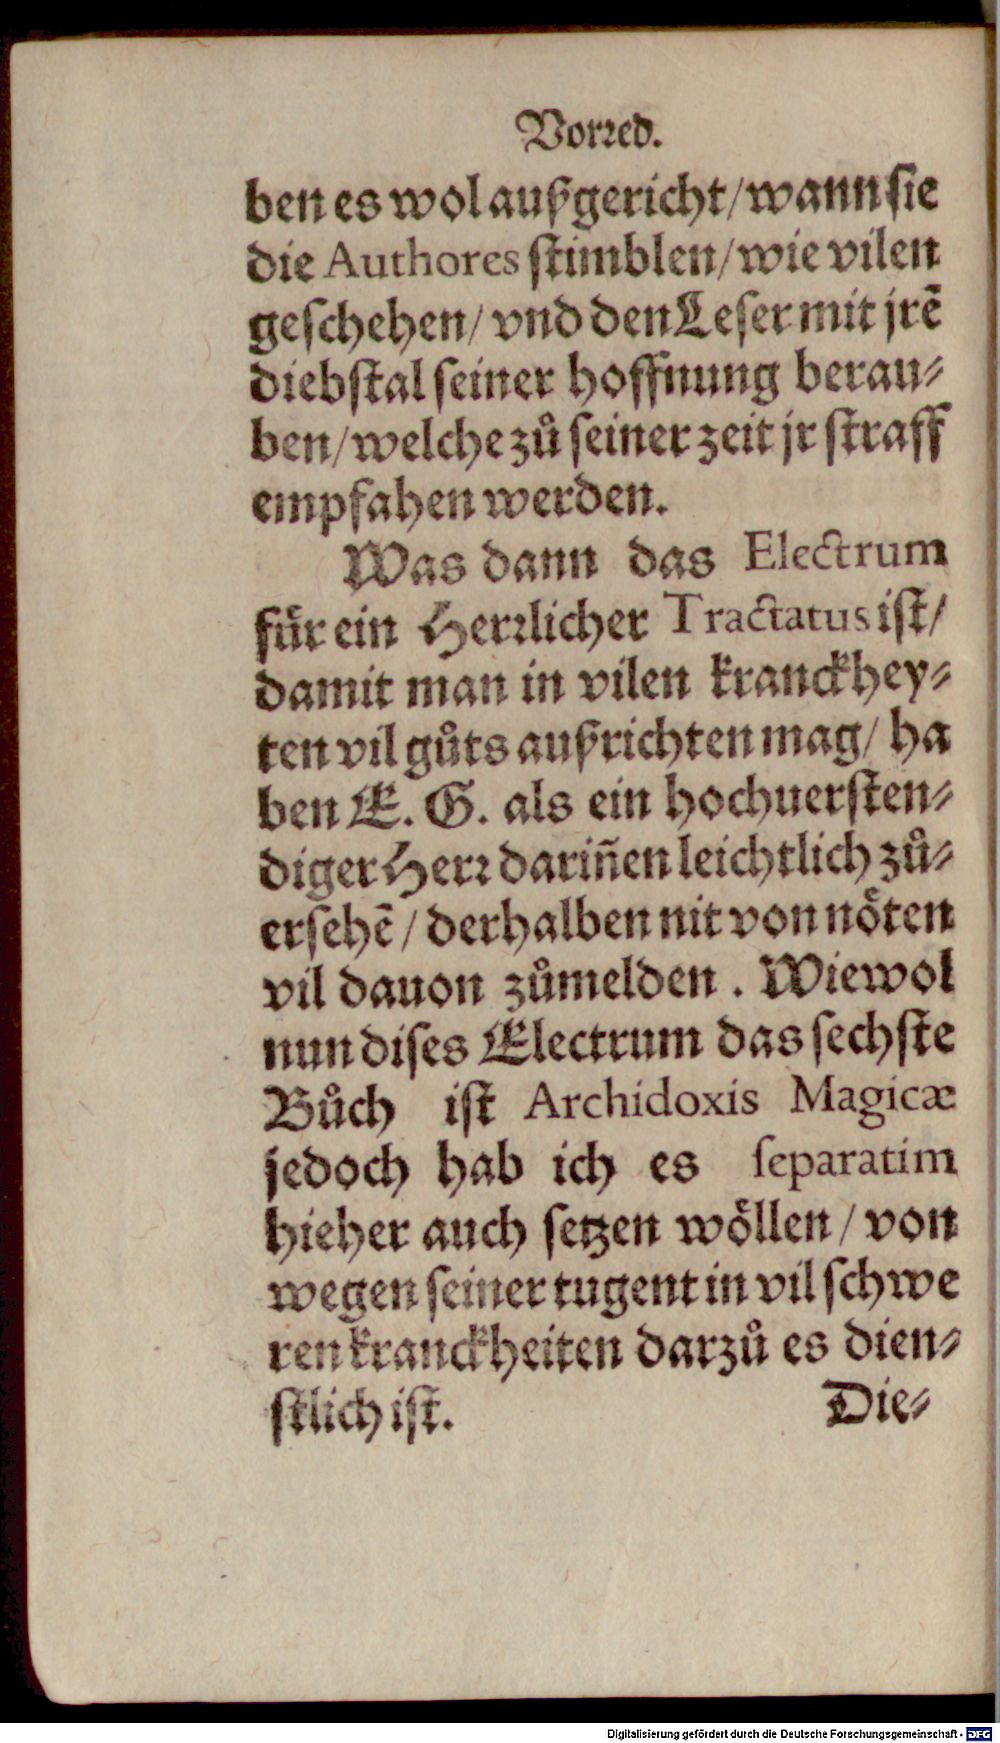 Vorꝛed.
ben es wol außgericht/ wann sie
die Authores stimblen/ wie vilen
geschehen/ vnd den Leser mit jrē
diebstal seiner hoffnung berau⸗
ben/ welche zů seiner zeit jr straff
empfahen werden.
Was dann das Electrum
für ein Herꝛlicher Tractatus ist/
damit man in vilen kranckhey⸗
ten vil gůts außrichten mag/ ha
ben E. G. als ein hochuersten⸗
diger Herꝛ dariñen leichtlich zů⸗
ersehē/ derhalben nit von nöten
vil dauon zůmelden. Wiewol
nun dises Electrum das sechste
Bůch ist Archidoxis Magicæ
jedoch hab ich es separatim
hieher auch setzen wöllen/ von
wegen seiner tugent in vil schwe
ren kranckheiten darzů es dien⸗
stlich ist. Die⸗
Digitalisierung gefördert durch die Deutsche Forschungsgemeinschaft - DFG